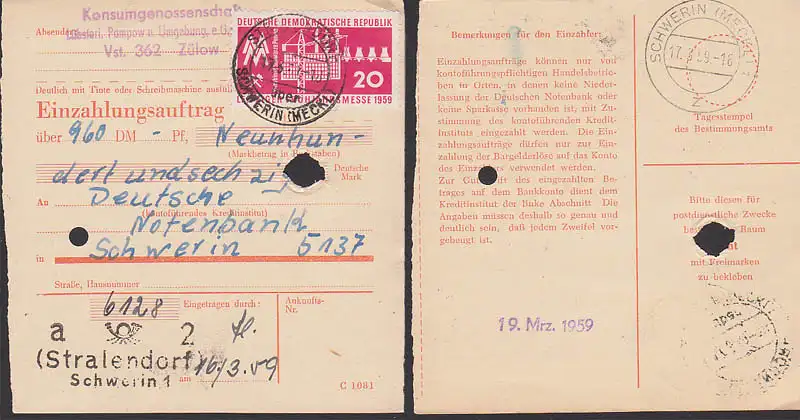 Konsumgenossenschaft
Absender
Pampow u. Umgebung,
Vst. 362 Zülow
DEUTSCHE DEMOKRATISCHE REPUBLIK
20
MESSE 1959
SCHWERIN (MECKL)
Deutlich mit Tinte oder Schreibmaschine ausfül
Einzahlungsauftrag
über 960 DM - Pf, Neunhun-
(Markbetrag in Buchstaben)
dert undsechzig
Deutsche
Mark
An Deutsche
(kontoführendes Kreditinstitut)
Notenbank
in Schwerin 5137
Straße, Hausnummer
6128
Eingetragen durch:
Ankunfts-
Nr.
a 2
(Stralendorf)
Schwerin 1
am 16/3.59
C 1081
Bemerkungen für den Einzahler:
Einzahlungsaufträge können nur von
kontoführungspflichtigen Handelsbetrie-
ben in Orten, in denen keine Nieder-
lassung der Deutschen Notenbank oder
keine Sparkasse vorhanden ist, mit Zu-
stimmung des kontoführenden Kredit-
instituts eingezahlt werden. Die Ein-
zahlungsaufträge dürfen nur zur Ein-
zahlung der Bargelderlöse auf das Konto
des Einzahlers verwendet werden.
Zur Gutschrift des eingezahlten Be-
trages auf dem Bankkonto dient dem
Kreditinstitut der linke Abschnitt Die
Angaben müssen deshalb so genau und
deutlich sein, daß jedem Zweifel vor-
gebeugt ist.
19. Mrz. 1959
SCHWERIN (MECKL) 1
17.3.59.-18
Z
Tagesstempel
des Bestimmungsamts
Bitte diesen für
postdienstliche Zwecke
Raum
mit Freimarken
zu bekleben